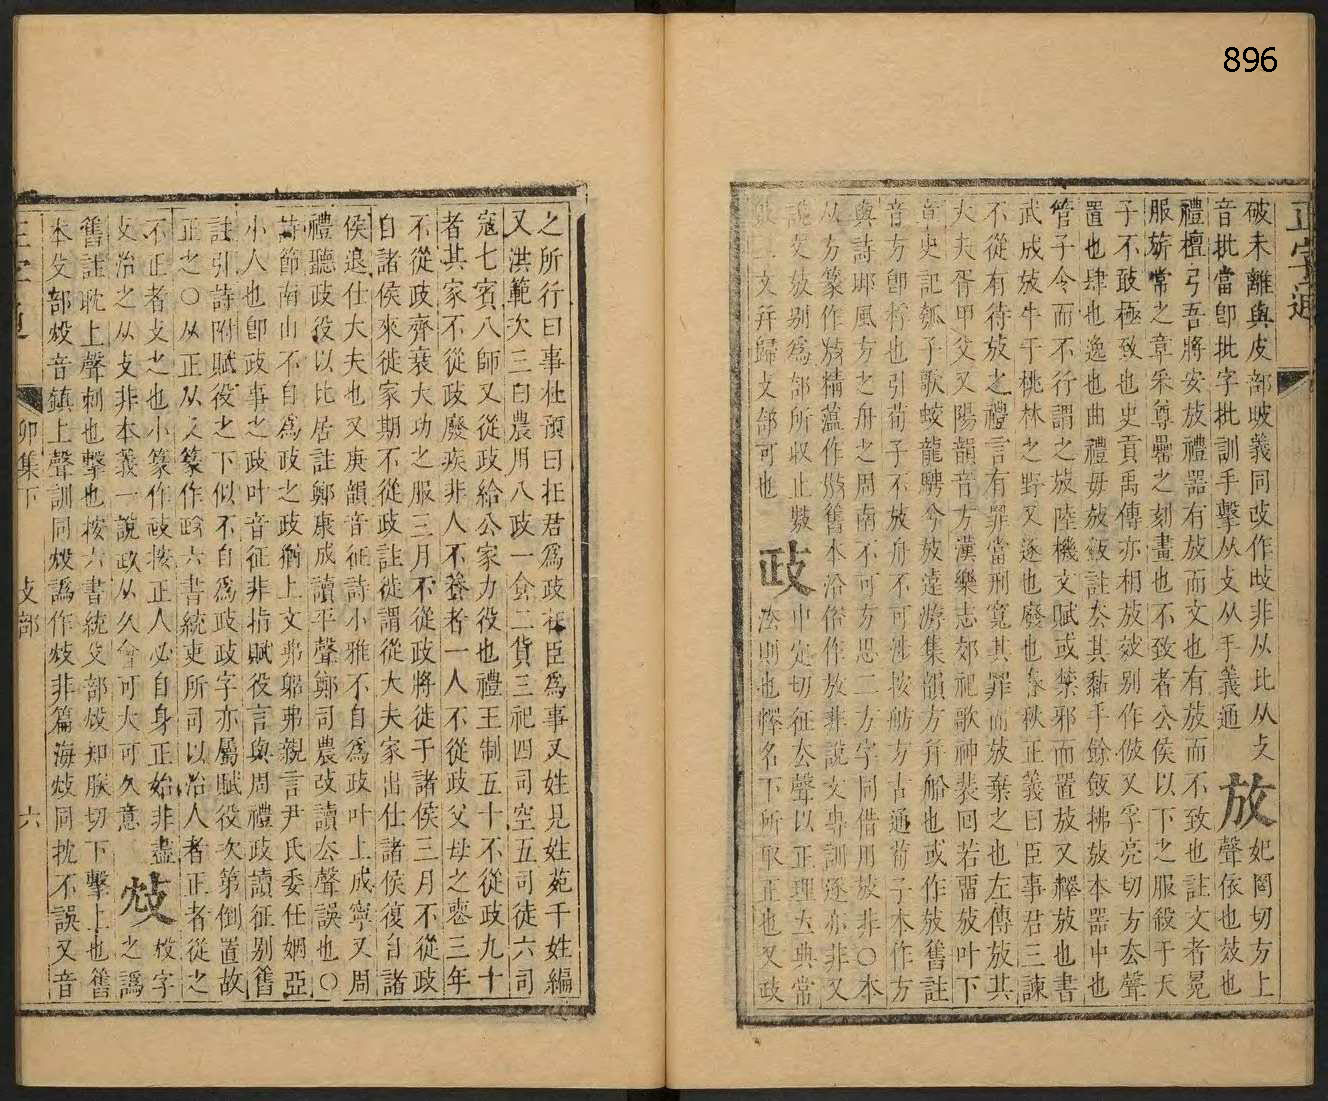 896
正字通
破未離與皮部㿭義同攱作歧非从比从攴
音批當卽批字批訓手擊从攴从手義通 放 妃罔切方上
聲依也效也
禮檀弓吾將安放禮器有放而文也有放而不致也註文者冕
服旂常之章采尊罍之刻畫也不致者公侯以下之服殺于天
子不敢極致也史貢禹傳亦相放效别作倣又孚亮切方去聲
置也肆也逸也曲禮毋放飯註去其黏手餘飯拂放本器中也
管子令而不行謂之放陸機文賦或禁邪而置放又釋放也書
武成放牛于桃林之野又逐也廢也春秋正義曰臣事君三諫
不從有待放之禮言有罪當刑寬其罪而放棄之也左傳放其
大夫胥甲父又陽韻音方漢樂志郊祀歌神裴回若畱放叶下
章史記瓠子歌蛟龍騁兮放遠游集韻方幷船也或作放舊註
音方卽枋也引荀子不放舟不可涉按舫方古通荀子本作方
與詩邶風方之舟之周南不可方思二方字同借用放非〇本
从方篆作放精薀作舊本沿俗作放非說文專訓逐亦非又
說文放别爲部所収止敫
二文幷歸文部可也 政 中定切征去聲以正理去典常
法則也釋名下所取正也又政
之所行曰事杜預曰在君爲政在臣爲事又姓見姓苑千姓編
又洪範次三曰農用八政一食二貨三祀四司空五司徒六司
寇七賓八師又從政給公家力役也禮王制五十不從政九十
者其家不從政廢疾非人不養者一人不從政父母之喪三年
不從政齊衰大功之服三月不從政將徙于諸侯三月不從政
自諸侯來徙家期不從政註徙謂從大夫家出仕諸侯復自諸
侯退仕大夫也又庚韻音征詩小雅不自爲政叶上成寧又周
禮聽政役以比居註鄭康成讀平聲鄭司農攱讀去聲誤也〇
詩節南山不自爲政之政猶上文弗躬弗親言尹氏委任姻亞
小人也卽政事之政叶音征非指賦役言與周禮政讀征别舊
註引詩附賦役之下似不自爲政政字亦屬賦役次第倒置故
正之〇从正从攵篆作政六書統吏所司以治人者正者從之
不正者攴之也小篆作政按正人必自身正始非盡
攴治之从攴非本義一說政从久會可大可久意 㪜 字
之譌
舊註耽上聲刺也擊也按六書統殳部殶知朕切下擊上也舊
本殳部殶音鎮上聲訓同殶譌作㪜非篇海㪜同抌不誤又音
正字通
卯集下
攴部
六